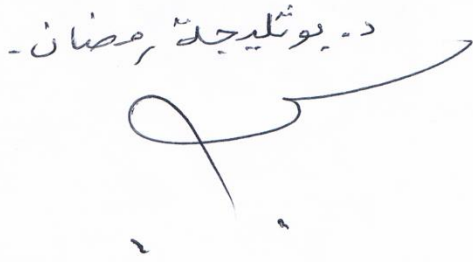 د. بوثليجة رمضان.